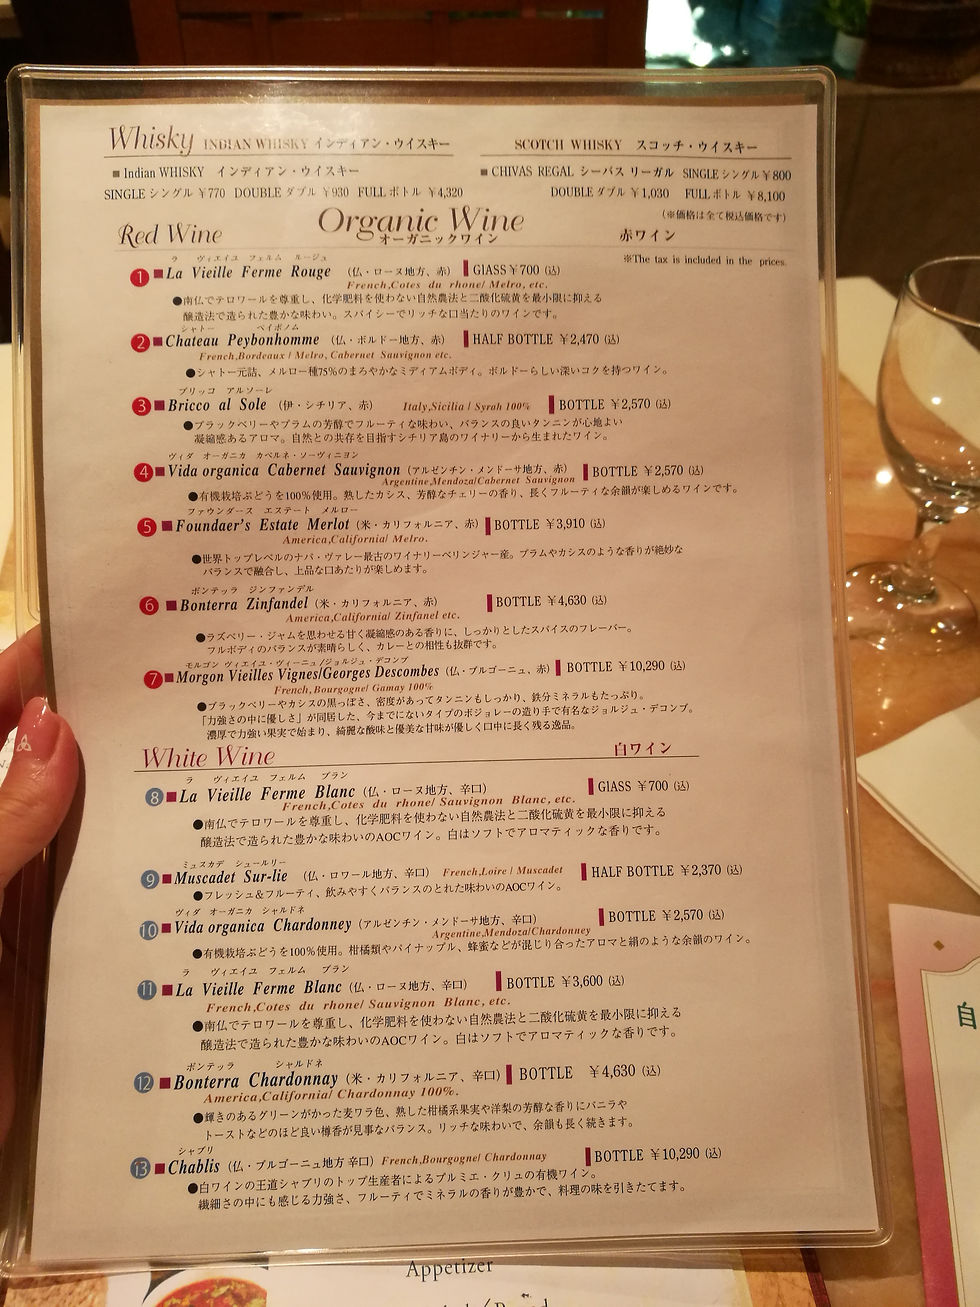 Whisky INDIAN WHISKY インディアン・ウイスキー
SCOTCH WHISKY スコッチ・ウイスキー
■Indian WHISKY インディアン・ウイスキー
SINGLE シングル ¥770 DOUBLE ダブル ¥930 FULL ボトル ¥4,320
■CHIVAS REGAL シーバス リーガル SINGLE シングル ¥800
DOUBLE ダブル ¥1,030 FULL ボトル ¥8,100
(※価格は全て税込価格です)
Organic Wine
オーガニックワイン
Red Wine
赤ワイン
※The tax is included in the prices.
ラ ヴィエイユ フェルム ルージュ
1 ■La Vieille Ferme Rouge (仏・ローヌ地方、赤) GlASS ¥700 (込)
French,Cotes du rhone/ Melro, etc.
●南仏でテロワールを尊重し、化学肥料を使わない自然農法と二酸化硫黄を最小限に抑える
醸造法で造られた豊かな味わい。スパイシーでリッチな口当たりのワインです。
シャトー ペイボノム
2 ■Chateau Peybonhomme (仏・ボルドー地方、赤) HALF BOTTLE ¥2,470 (込)
French,Bordeaux / Melro, Cabernet Sauvignon etc.
●シャトー元詰、メルロー種75%のまろやかなミディアムボディ。ボルドーらしい深いコクを持つワイン。
ブリッコ アルソーレ
3 ■Bricco al Sole (伊・シチリア、赤) Italy,Sicilia / Syrah 100% BOTTLE ¥2,570 (込)
●ブラックベリーやプラムの芳醇でフルーティな味わい、バランスの良いタンニンが心地よい
凝縮感あるアロマ。自然との共存を目指すシチリア島のワイナリーから生まれたワイン。
ヴィダ オーガニカ カベルネ・ソーヴィニヨン
4 ■Vida organica Cabernet Sauvignon (アルゼンチン・メンドーサ地方、赤) BOTTLE ¥2,570 (込)
Argentine,Mendoza/Cabernet Sauvignon
●有機栽培ぶどうを100%使用。熟したカシス、芳醇なチェリーの香り、長くフルーティな余韻が楽しめるワインです。
ファウンダース エステート メルロー
5 ■Foundaer's Estate Merlot (米・カリフォルニア、赤) BOTTLE ¥3,910 (込)
America,California/ Melro.
●世界トップレベルのナパ・ヴァレー最古のワイナリーベリンジャー産。プラムやカシスのような香りが絶妙な
バランスで融合し、上品な口あたりが楽しめます。
ボンテッラ ジンファンデル
6 ■Bonterra Zinfandel (米・カリフォルニア、赤) BOTTLE ¥4,630 (込)
America,California/ Zinfanel etc.
●ラズベリー・ジャムを思わせる甘く凝縮感のある香りに、しっかりとしたスパイスのフレーバー。
フルボディのバランスが素晴らしく、カレーとの相性も抜群です。
モルゴン ヴィエイユ・ヴィーニュ/ジョルジュ・デコンブ
7 ■Morgon Vieilles Vignes/Georges Descombes (仏・ブルゴーニュ、赤) BOTTLE ¥10,290 (込)
French, Bourgogne/ Gamay 100%
●ブラックベリーやカシスの黒っぽさ、密度があってタンニンもしっかり、鉄分ミネラルもたっぷり。
「力強さの中に優しさ」が同居した、今までにないタイプのボジョレーの造り手で有名なジョルジュ・デコンブ。
濃厚で力強い果実で始まり、綺麗な酸味と優美な甘味が優しく口中に長く残る逸品。
White Wine
白ワイン
ラ ヴィエイユ フェルム ブラン
8 ■La Vieille Ferme Blanc (仏・ローヌ地方、辛口) GlASS ¥700 (込)
French,Cotes du rhone/ Sauvignon Blanc, etc.
●南仏でテロワールを尊重し、化学肥料を使わない自然農法と二酸化硫黄を最小限に抑える
醸造法で造られた豊かな味わいのAOCワイン。白はソフトでアロマティックな香りです。
ミュスカデ シュールリー
9 ■Muscadet Sur-lie (仏・ロワール地方、辛口) French,Loire / Muscadet HALF BOTTLE ¥2,370 (込)
●フレッシュ&フルーティ、飲みやすくバランスのとれた味わいのAOCワイン。
ヴィダ オーガニカ シャルドネ
10 ■Vida organica Chardonney (アルゼンチン・メンドーサ地方、辛口) BOTTLE ¥2,570 (込)
Argentine,Mendoza/Chardonney
●有機栽培ぶどうを100%使用。柑橘類やパイナップル、蜂蜜などが混じり合ったアロマと絹のような余韻のワイン。
ラ ヴィエイユ フェルム ブラン
11 ■La Vieille Ferme Blanc (仏・ローヌ地方、辛口) BOTTLE ¥3,600 (込)
French,Cotes du rhone/ Sauvignon Blanc, etc.
●南仏でテロワールを尊重し、化学肥料を使わない自然農法と二酸化硫黄を最小限に抑える
醸造法で造られた豊かな味わいのAOCワイン。白はソフトでアロマティックな香りです。
ボンテッラ シャルドネ
12 ■Bonterra Chardonnay (米・カリフォルニア、辛口) BOTTLE ¥4,630 (込)
America,California/ Chardonnay 100%.
●輝きのあるグリーンがかった麦ワラ色、熟した柑橘系果実や洋梨の芳醇な香りにバニラや
トーストなどのほど良い樽香が見事なバランス。リッチな味わいで、余韻も長く続きます。
シャブリ
13 ■Chablis (仏・ブルゴーニュ地方 辛口) French,Bourgogne/ Chardonnay BOTTLE ¥10,290 (込)
●白ワインの王道シャブリのトップ生産者によるプルミエ・クリュの有機ワイン。
繊細さの中にも感じる力強さ、フルーティでミネラルの香りが豊かで、料理の味を引きたてます。
自
Appetizer